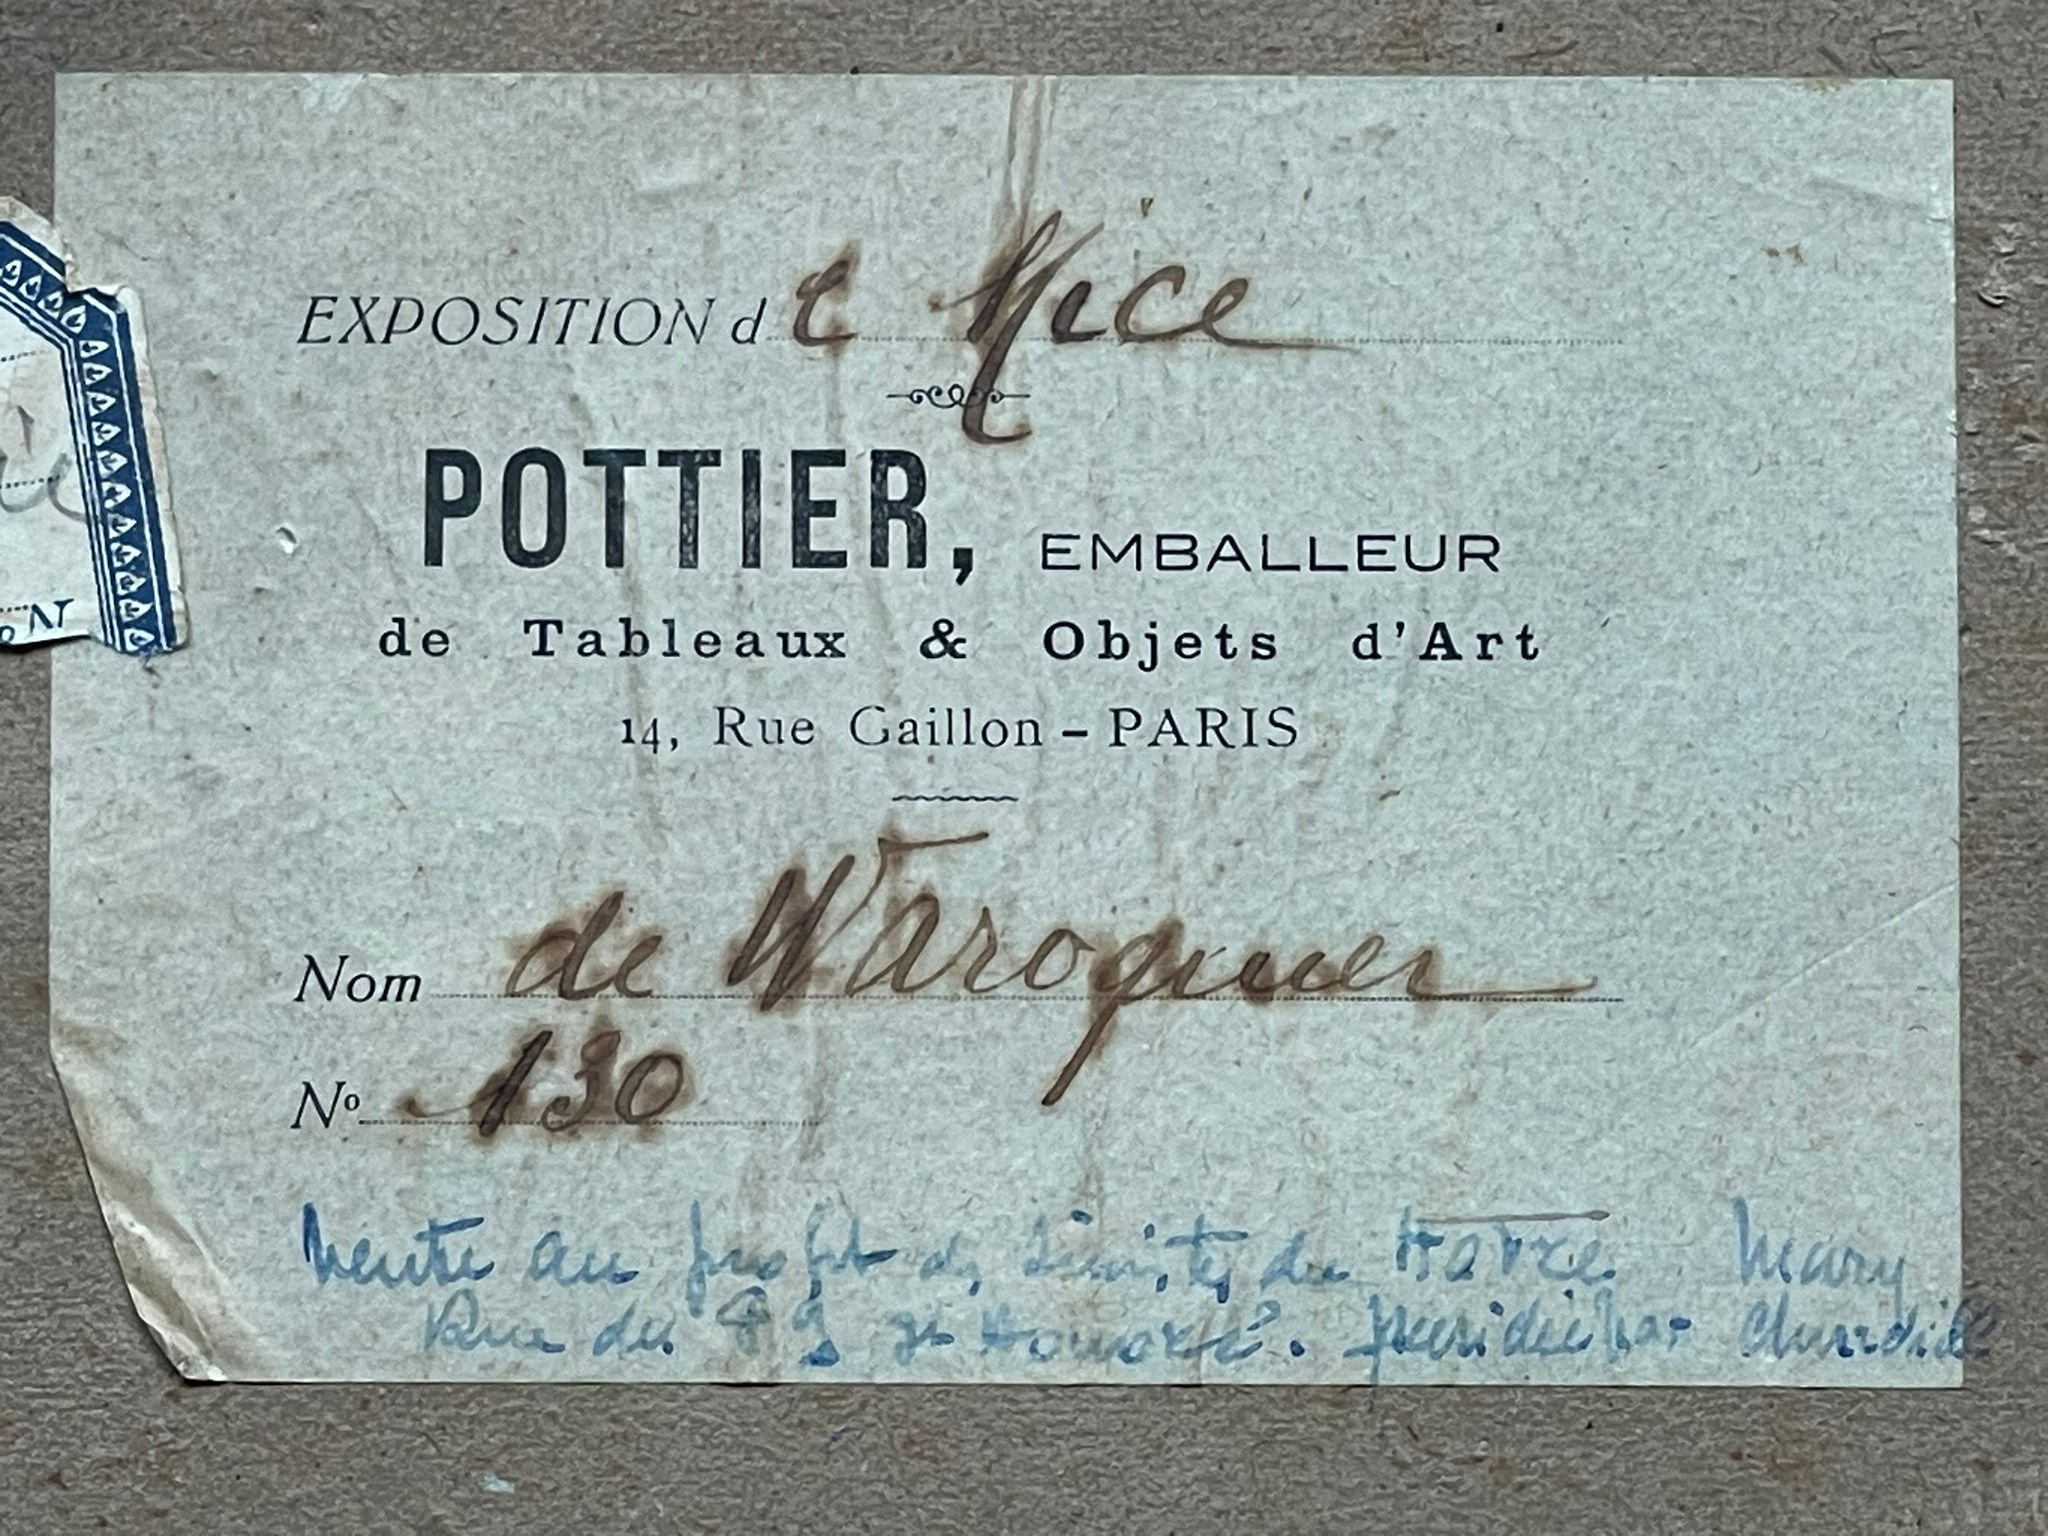 EXPOSITION de Nice
POTTIER, EMBALLEUR
de Tableaux & Objets d'Art
14, Rue Gaillon - PARIS
Nom de Waroquier
No 130
Vente au profit des Sinistrés du Havre. Mary
Rue du Fg St Honoré. présidée par Churchill
No